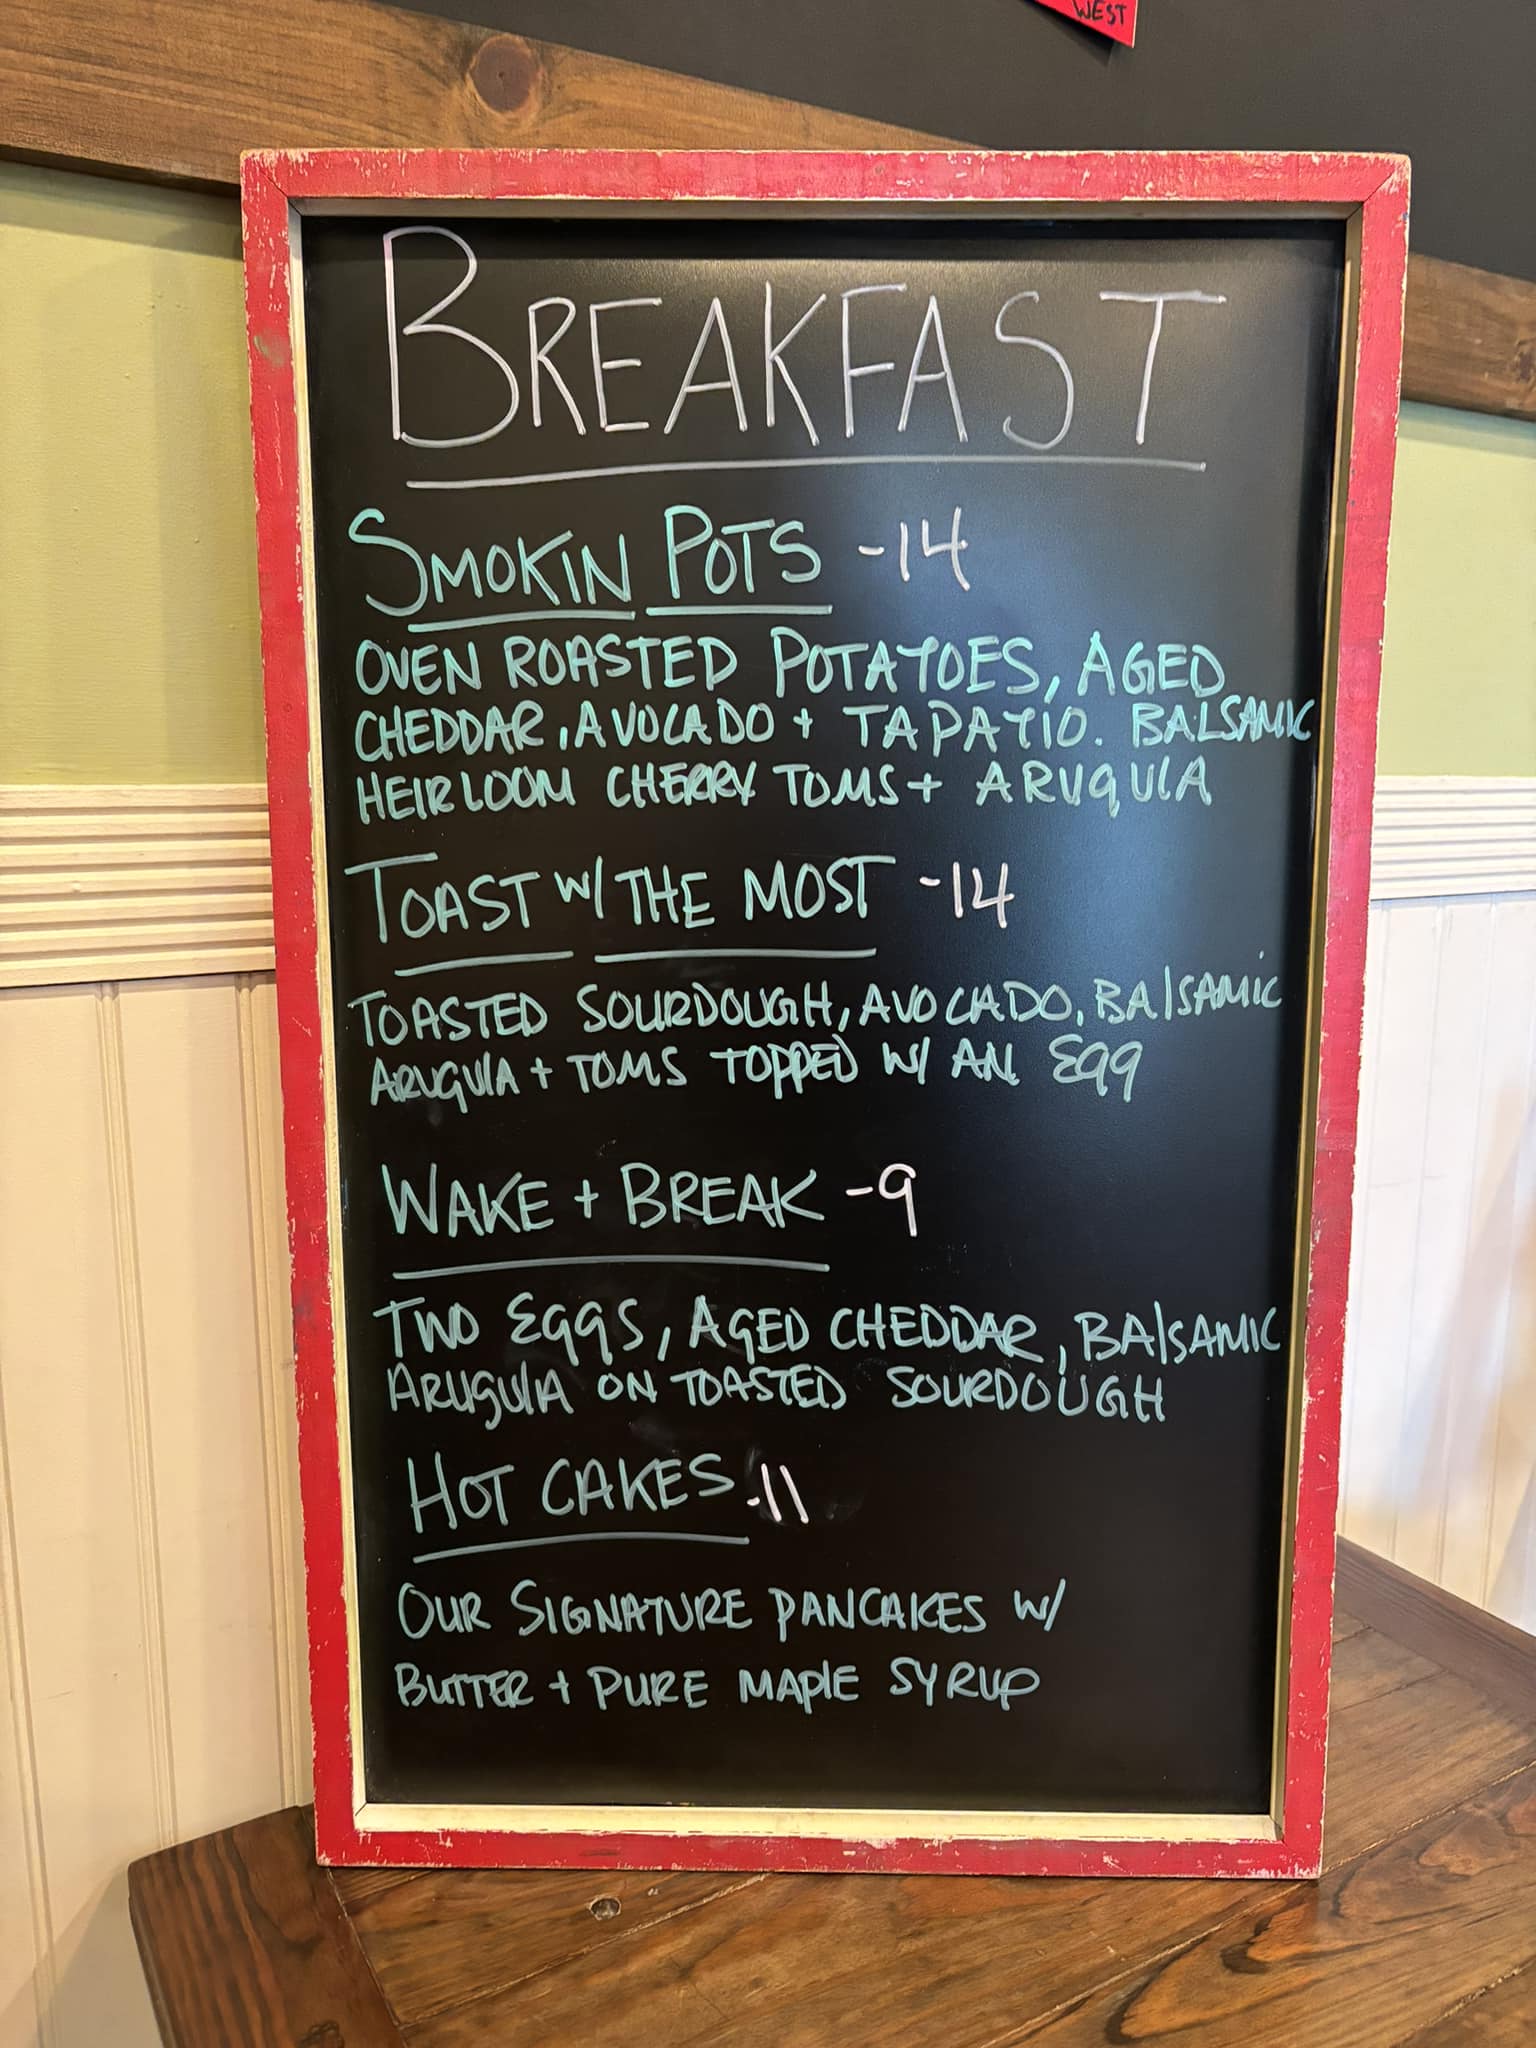 WEST
BREAKFAST
SMOKIN POTS -14
OVEN ROASTED POTATOES, AGED
CHEDDAR, AVOCADO + TAPATIO. BALSAMIC
HEIRLOOM CHERRY TOMS + ARUGULA
TOAST W/ THE MOST -14
TOASTED SOURDOUGH, AVOCADO, BALSAMIC
ARUGULA + TOMS TOPPED W/ AN EGG
WAKE + BREAK -9
TWO EGGS, AGED CHEDDAR, BALSAMIC
ARUGULA ON TOASTED SOURDOUGH
HOT CAKES -11
OUR SIGNATURE PANCAKES W/
BUTTER + PURE MAPLE SYRUP